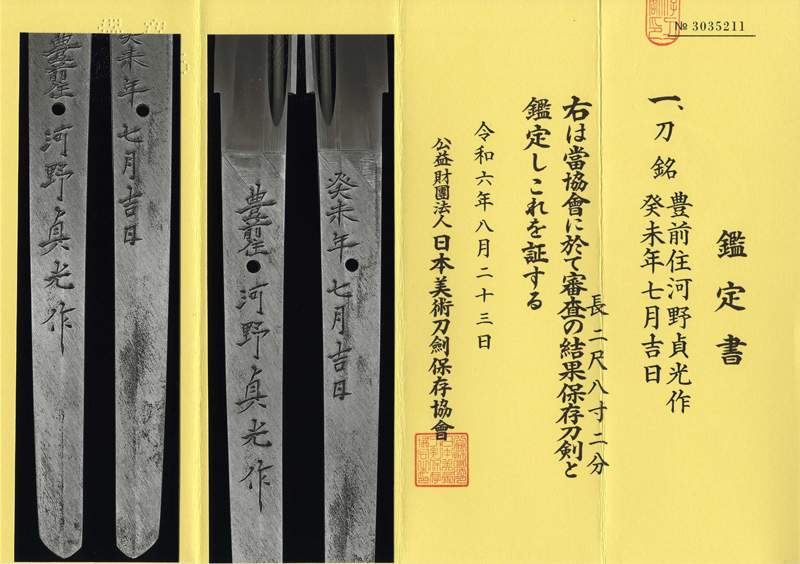 № 3035211
鑑定書
一、刀 銘 豊前住河野貞光作
癸未年七月吉日
長 二尺八寸二分
右は當協會に於て審査の結果保存刀剣と
鑑定しこれを証する
令和六年八月二十三日
公益財團法人 日本美術刀劍保存協會
癸未年七月吉日
豊前住河野貞光作
癸未年七月吉日
豊前住河野貞光作